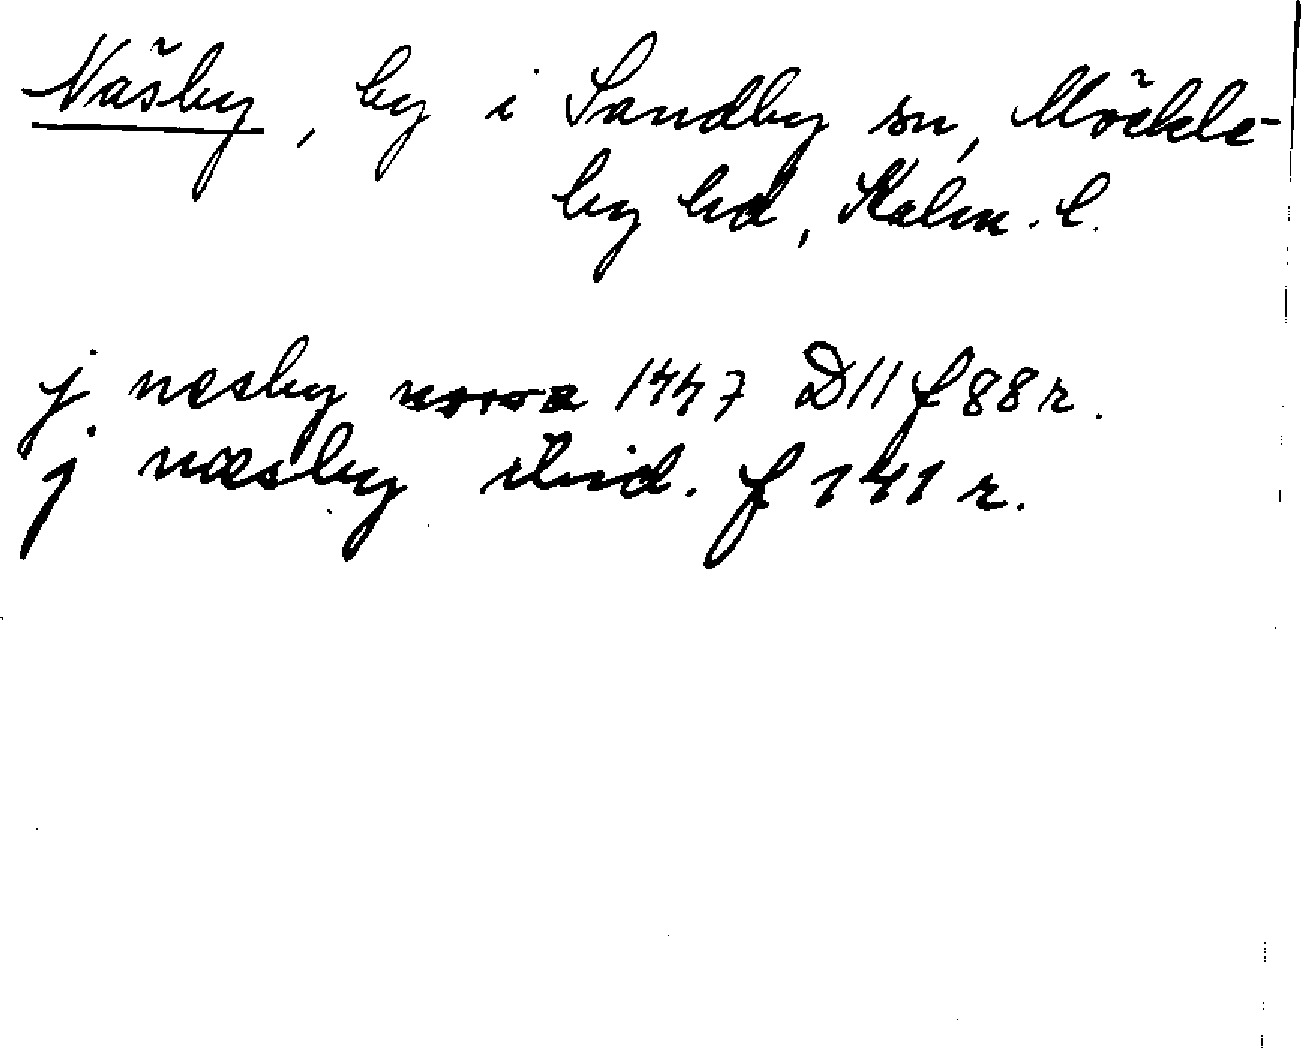 Näsby, by i Sandby sn, Möckle-
by hd, Kalm. l.
j næsby 1447 D11 f 88 r.
j næsby ibid. f 141 r.